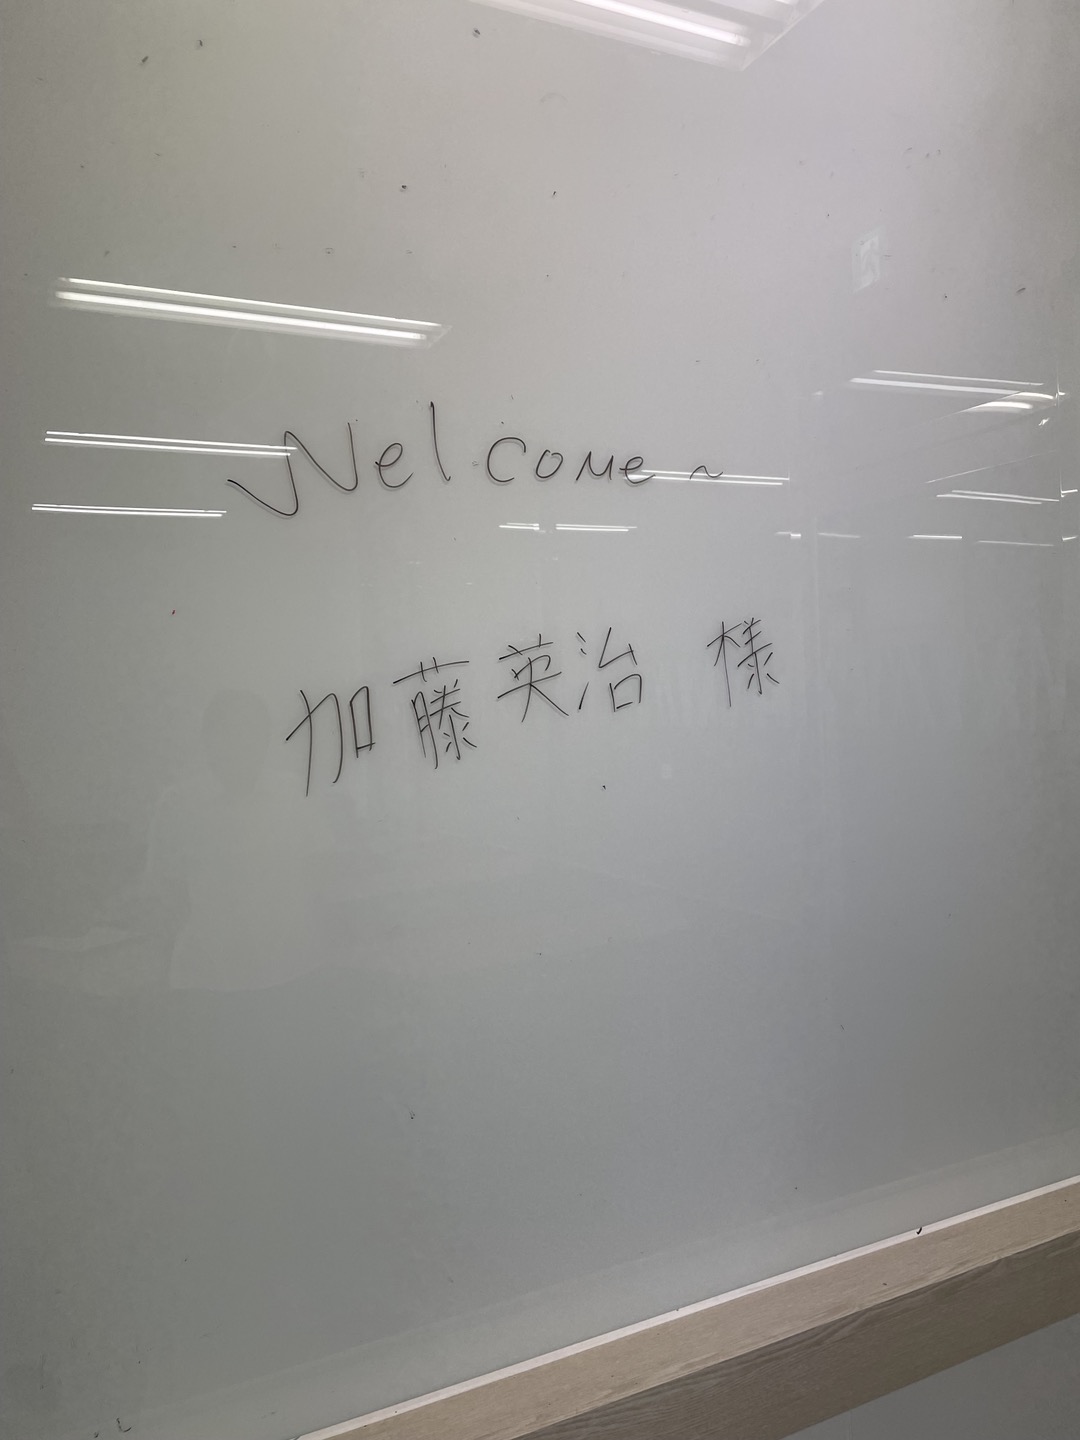 Welcome ~
加藤英治 様